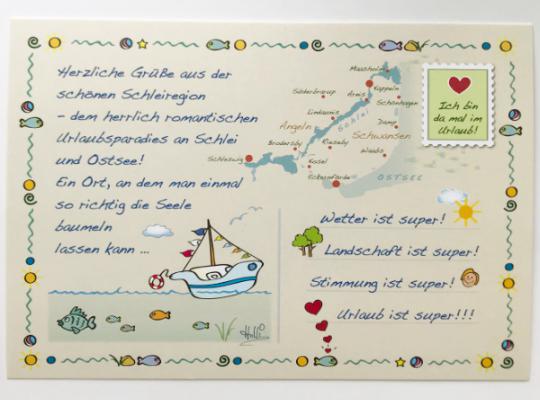 Herzliche Grüße aus der
schönen Schleiregion
- dem herrlich romantischen
Urlaubsparadies an Schlei
und Ostsee!
Ein Ort, an dem man einmal
so richtig die Seele
baumeln
lassen kann ...
Maasholm
Kappeln
Süderbrarup
Arnis
Schönhagen
Lindaunis
Schlei
Damp
Angeln
Schwansen
Brodersby
Rieseby
Waabs
Schleswig
Kosel
Eckernförde
OSTSEE
Ich bin
da mal im
Urlaub!
Wetter ist super!
Landschaft ist super!
Stimmung ist super!
Urlaub ist super!!!